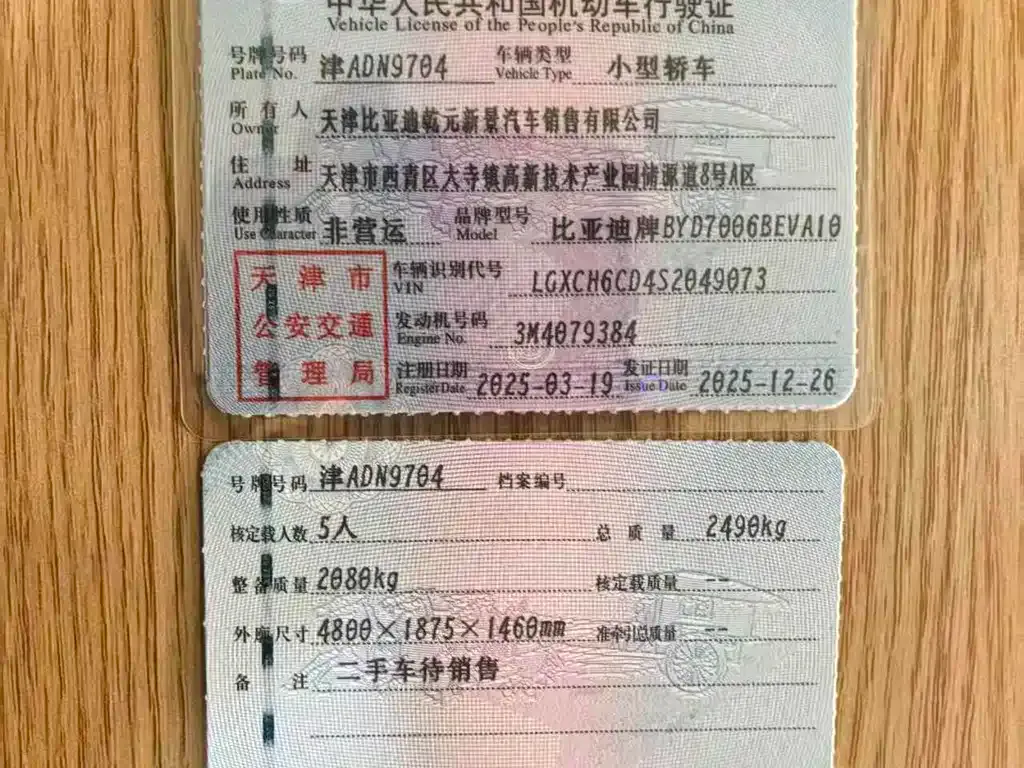 中华人民共和国机动车行驶证
Vehicle License of the People's Republic of China
号牌号码 Plate No. 津ADN9704 车辆类型 Vehicle Type 小型轿车
所有人 Owner 天津比亚迪乾元新景汽车销售有限公司
住址 Address 天津市西青区大寺镇高新技术产业园储源道8号A区
使用性质 Use Character 非营运 品牌型号 Model 比亚迪牌BYD7006BEVA10
天津市
公安交通
管理局
车辆识别代号 VIN LGXCH6CD4S2049073
发动机号码 Engine No. 3M4079384
注册日期 Register Date 2025-03-19 发证日期 Issue Date 2025-12-26
号牌号码 津ADN9704 档案编号
核定载人数 5人 总质量 2490kg
整备质量 2080kg 核定载质量 --
外廓尺寸 4800×1875×1460mm 准牵引总质量 --
备注 二手车待销售